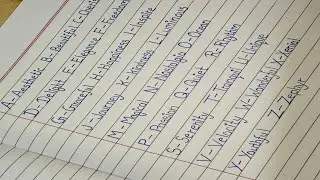 A - Aesthetic B - Beautiful C - 
D - Delight E - Elegance F - Freedom
G - Graceful H - Happiness I - Inspire
J - Journey K - Kindness L - Luminous
M - Magical N - Midnight O - Ocean
P - Passion Q - Quiet R - Rhythm
S - Serenity T - Tranquil U - Unique
V - Velocity W - Wonderful X - Xenial
Y - Youthful Z - Zephyr